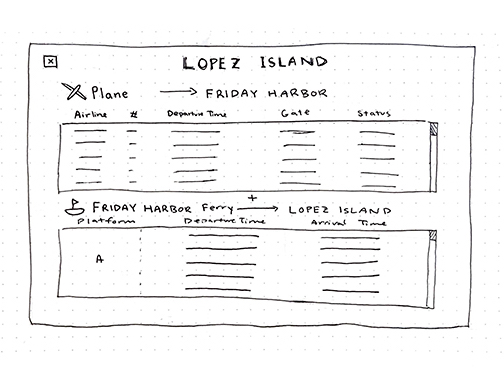 LOPEZ ISLAND
Plane → FRIDAY HARBOR
Airline # Departure Time Gate Status
+
FRIDAY HARBOR Ferry → LOPEZ ISLAND
Platform Departure Time Arrival Time
A